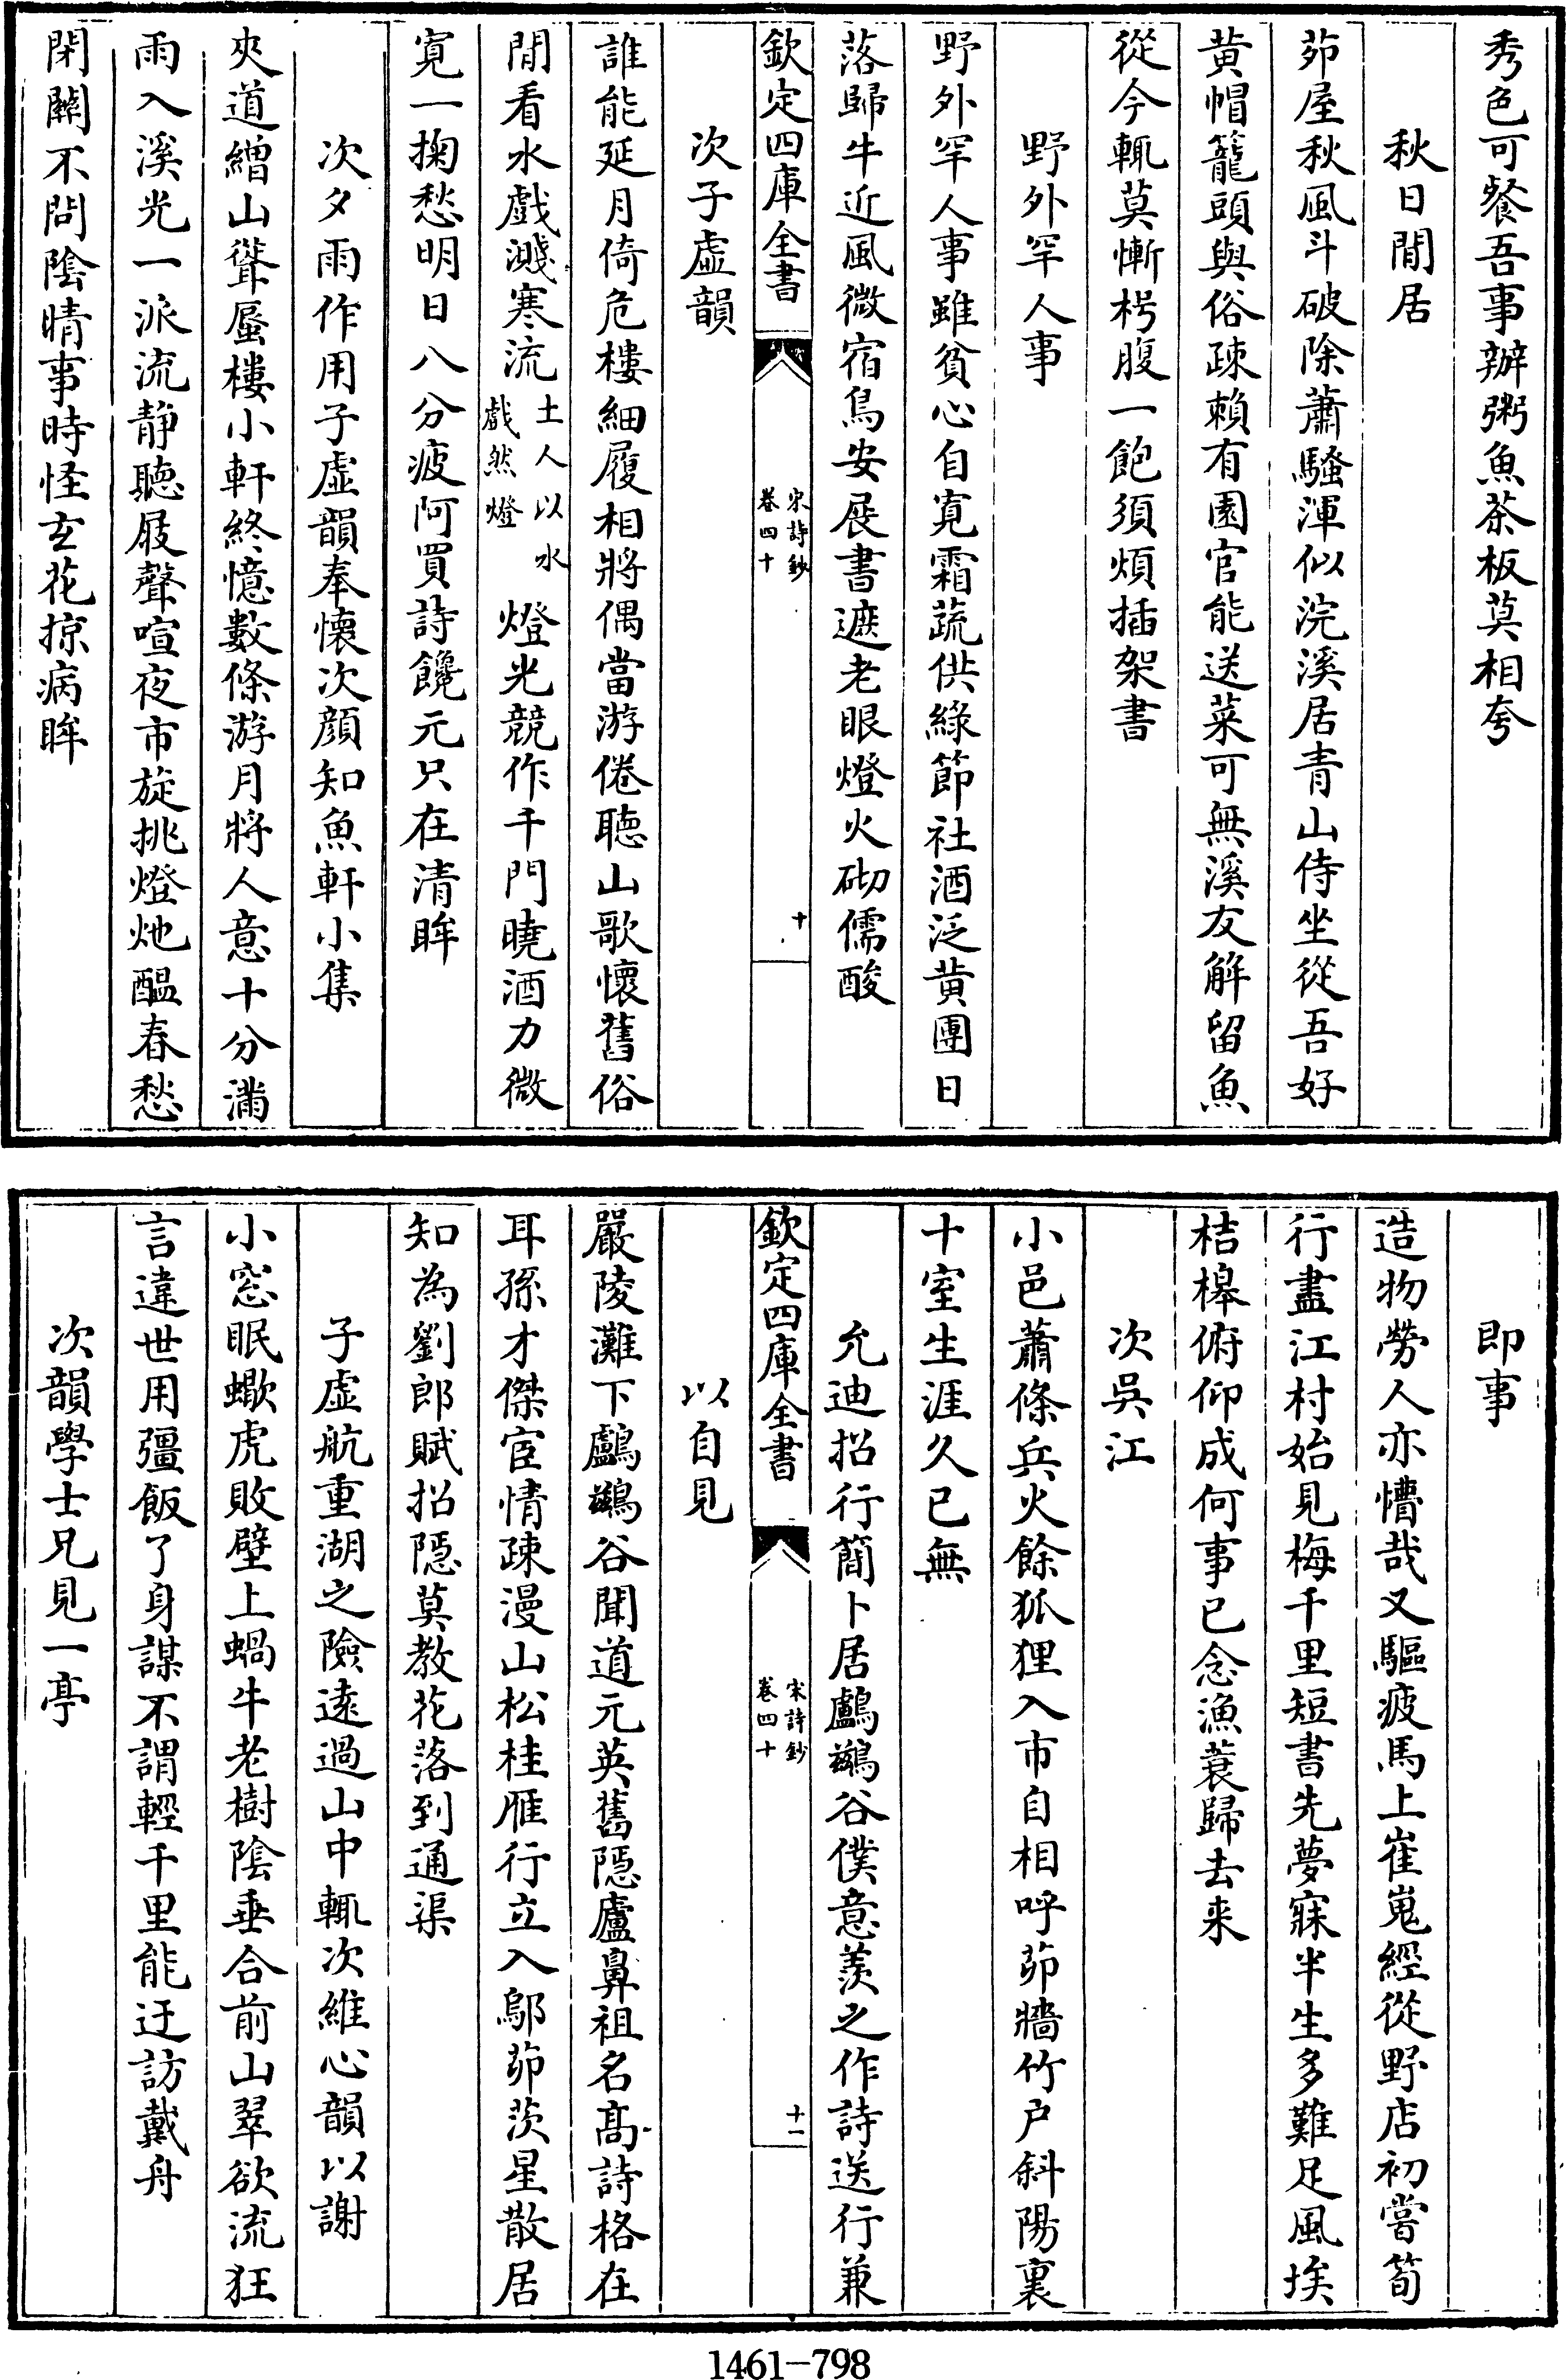 秀色可餐吾事辦粥魚茶板莫相夸
秋日閒居
茆屋秋風斗破除蕭騷渾似浣溪居青山侍坐從吾好
黄帽籠頭與俗疎賴有園官能送菜可無溪友解留魚
從今輒莫慚枵腹一飽須煩插架書
野外罕人事
野外罕人事雖貧心自寛霜蔬供綠節社酒泛黄團日
落歸牛近風微宿鳥安展書遮老眼燈火砌儒酸
欽定四庫全書
宋詩鈔
卷四十
十
次子虛韻
誰能延月倚危樓細履相將偶當游倦聽山歌懷舊俗
閒看水戲濺寒流
土人以水
戲然燈
燈光競作千門曉酒力微
寛一掬愁明日八分疲阿買詩饞元只在清眸
次夕雨作用子虛韻奉懷次顔知魚軒小集
夾道繒山聳蜃樓小軒終憶數條游月將人意十分滿
雨入溪光一派流静聽屐聲喧夜市旋挑燈灺醖春愁
閉關不問陰晴事時怪玄花掠病眸
即事
造物勞人亦慒哉又驅疲馬上崔嵬經從野店初嘗筍
行盡江村始見梅千里短書先夢寐半生多難足風埃
桔槔俯仰成何事已念漁蓑歸去来
次吳江
小邑蕭條兵火餘狐狸入市自相呼茆牆竹户斜陽裏
十室生涯久已無
允迪招行簡卜居鸕鷀谷僕意羨之作詩送行兼
欽定四庫全書
宋詩鈔
卷四十
十一
以自見
嚴陵灘下鸕鷀谷聞道元英舊隠廬鼻祖名髙詩格在
耳孫才傑宦情疎漫山松桂雁行立入鄔茆茨星散居
知為劉郎賦招隠莫教花落到通渠
子虛航重湖之險遠過山中輒次維心韻以謝
小窓眠蠍虎敗壁上蝸牛老樹陰垂合前山翠欲流狂
言違世用彊飯了身謀不謂輕千里能迂訪戴舟
次韻學士兄見一亭
1461-798